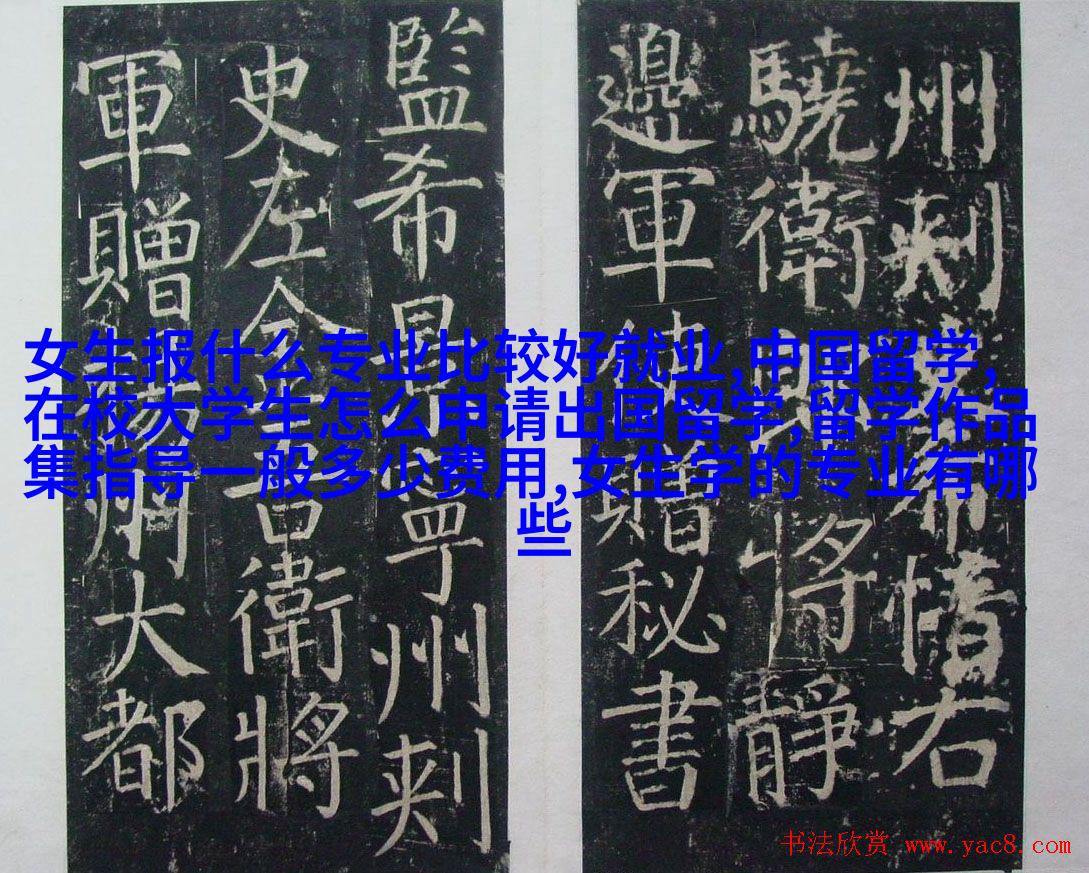 女生报什么专业比较好就业,中国留学,
在校大学生怎么申请出国留学,留学作品
集指导一般多少费用,女生学的专业有哪
些
州刾希愔右
驍衛將靜
邊軍贈秘書
監希寧州刾
史左金吾衛將
軍贈州大都
书法欣赏 www.yac8.com